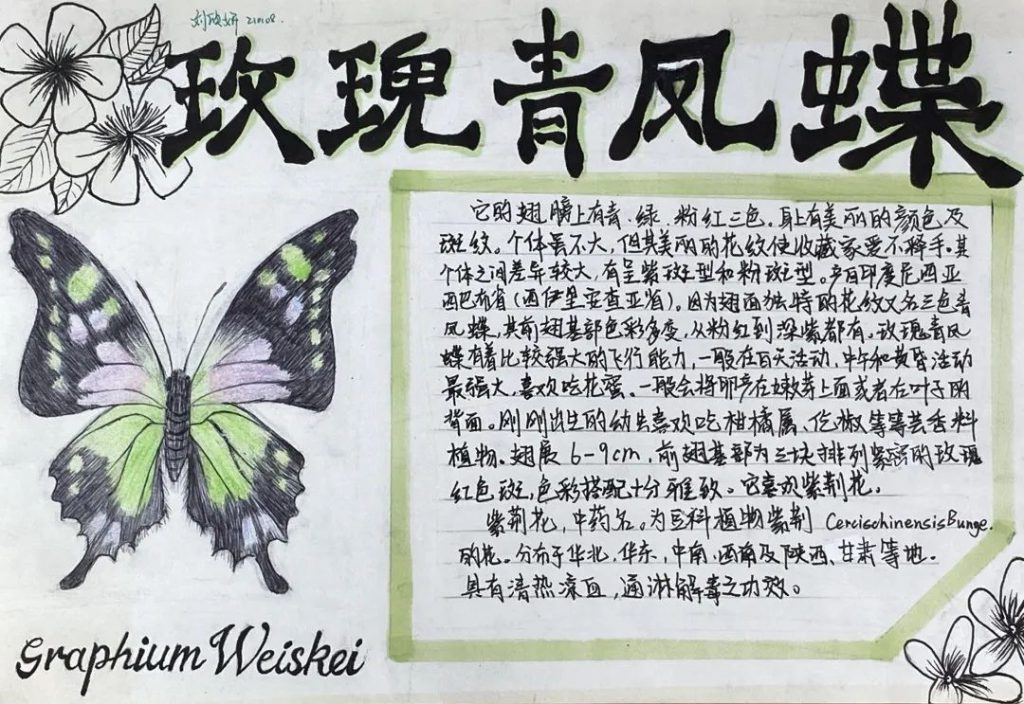 刘欣妍 210108.
玫瑰青凤蝶
它的翅膀上有青、绿、粉红三色,身上有美丽的颜色及
斑纹。个体虽不大,但其美丽的花纹使收藏家爱不释手。其
个体之间差异较大,有呈紫斑型和粉斑型。产自印度尼西亚
西巴布省(西伊里安查亚省)。因为翅面独特的花纹又名三色青
凤蝶,其前翅基部色彩多变,从粉红到深紫都有。玫瑰青凤
蝶有着比较强大的飞行能力,一般在白天活动,中午和黄昏活动
最强大,喜欢吃花蜜。一般会将卵产在嫩芽上面或者在叶子的
背面。刚刚出生的幼虫喜欢吃柑橘属、花椒等等芸香料
植物。翅展6-9cm,前翅基部为三块排列紧密的玫瑰
红色斑,色彩搭配十分雅致。它喜欢紫荆花。
紫荆花,中药名。为豆科植物紫荆 CercischinensisBunge.
的花。分布于华北、华东、中南、西南及陕西、甘肃等地.
具有清热凉血,通淋解毒之功效。
Graphium Weiskei